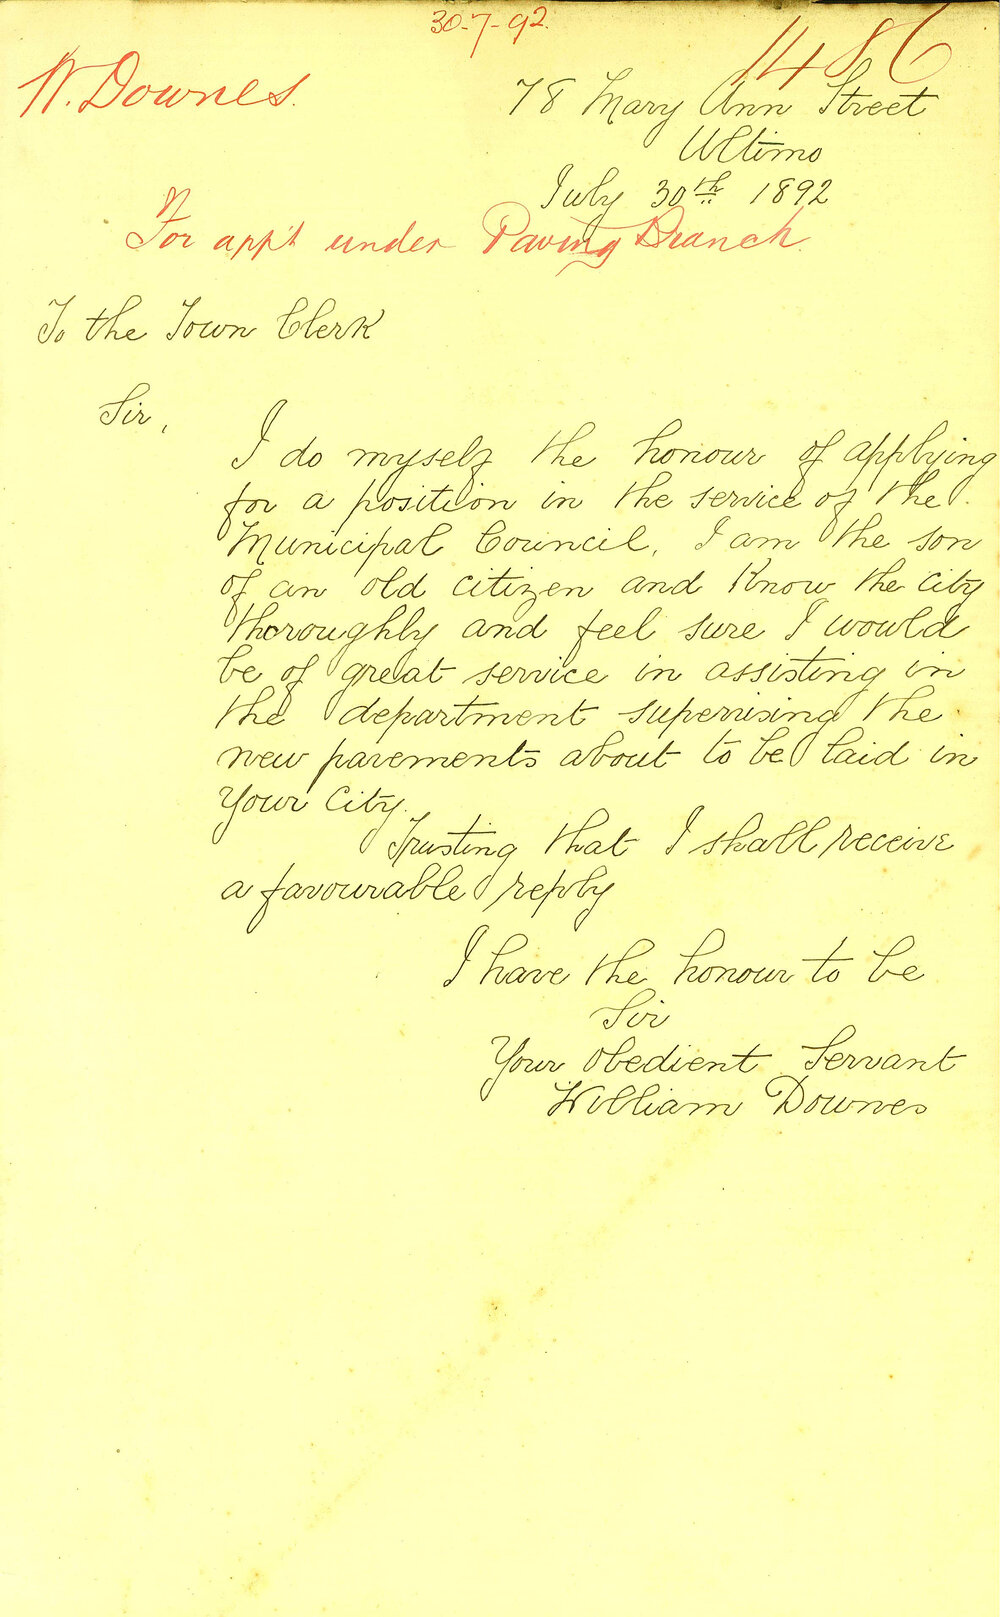 30-7-92.
1486
W. Downes.
78 Mary Ann Street
Ultimo
July 30th 1892
For app't under Paving Branch
To the Town Clerk
Sir,
I do myself the honour of applying
for a position in the service of the
Municipal Council, I am the son
of an old citizen and know the city
thoroughly and feel sure I would
be of great service in assisting in
the department supervising the
new pavements about to be laid in
your city.
Trusting that I shall receive
a favourable reply
I have the honour to be
Sir
Your Obedient Servant
William Downes